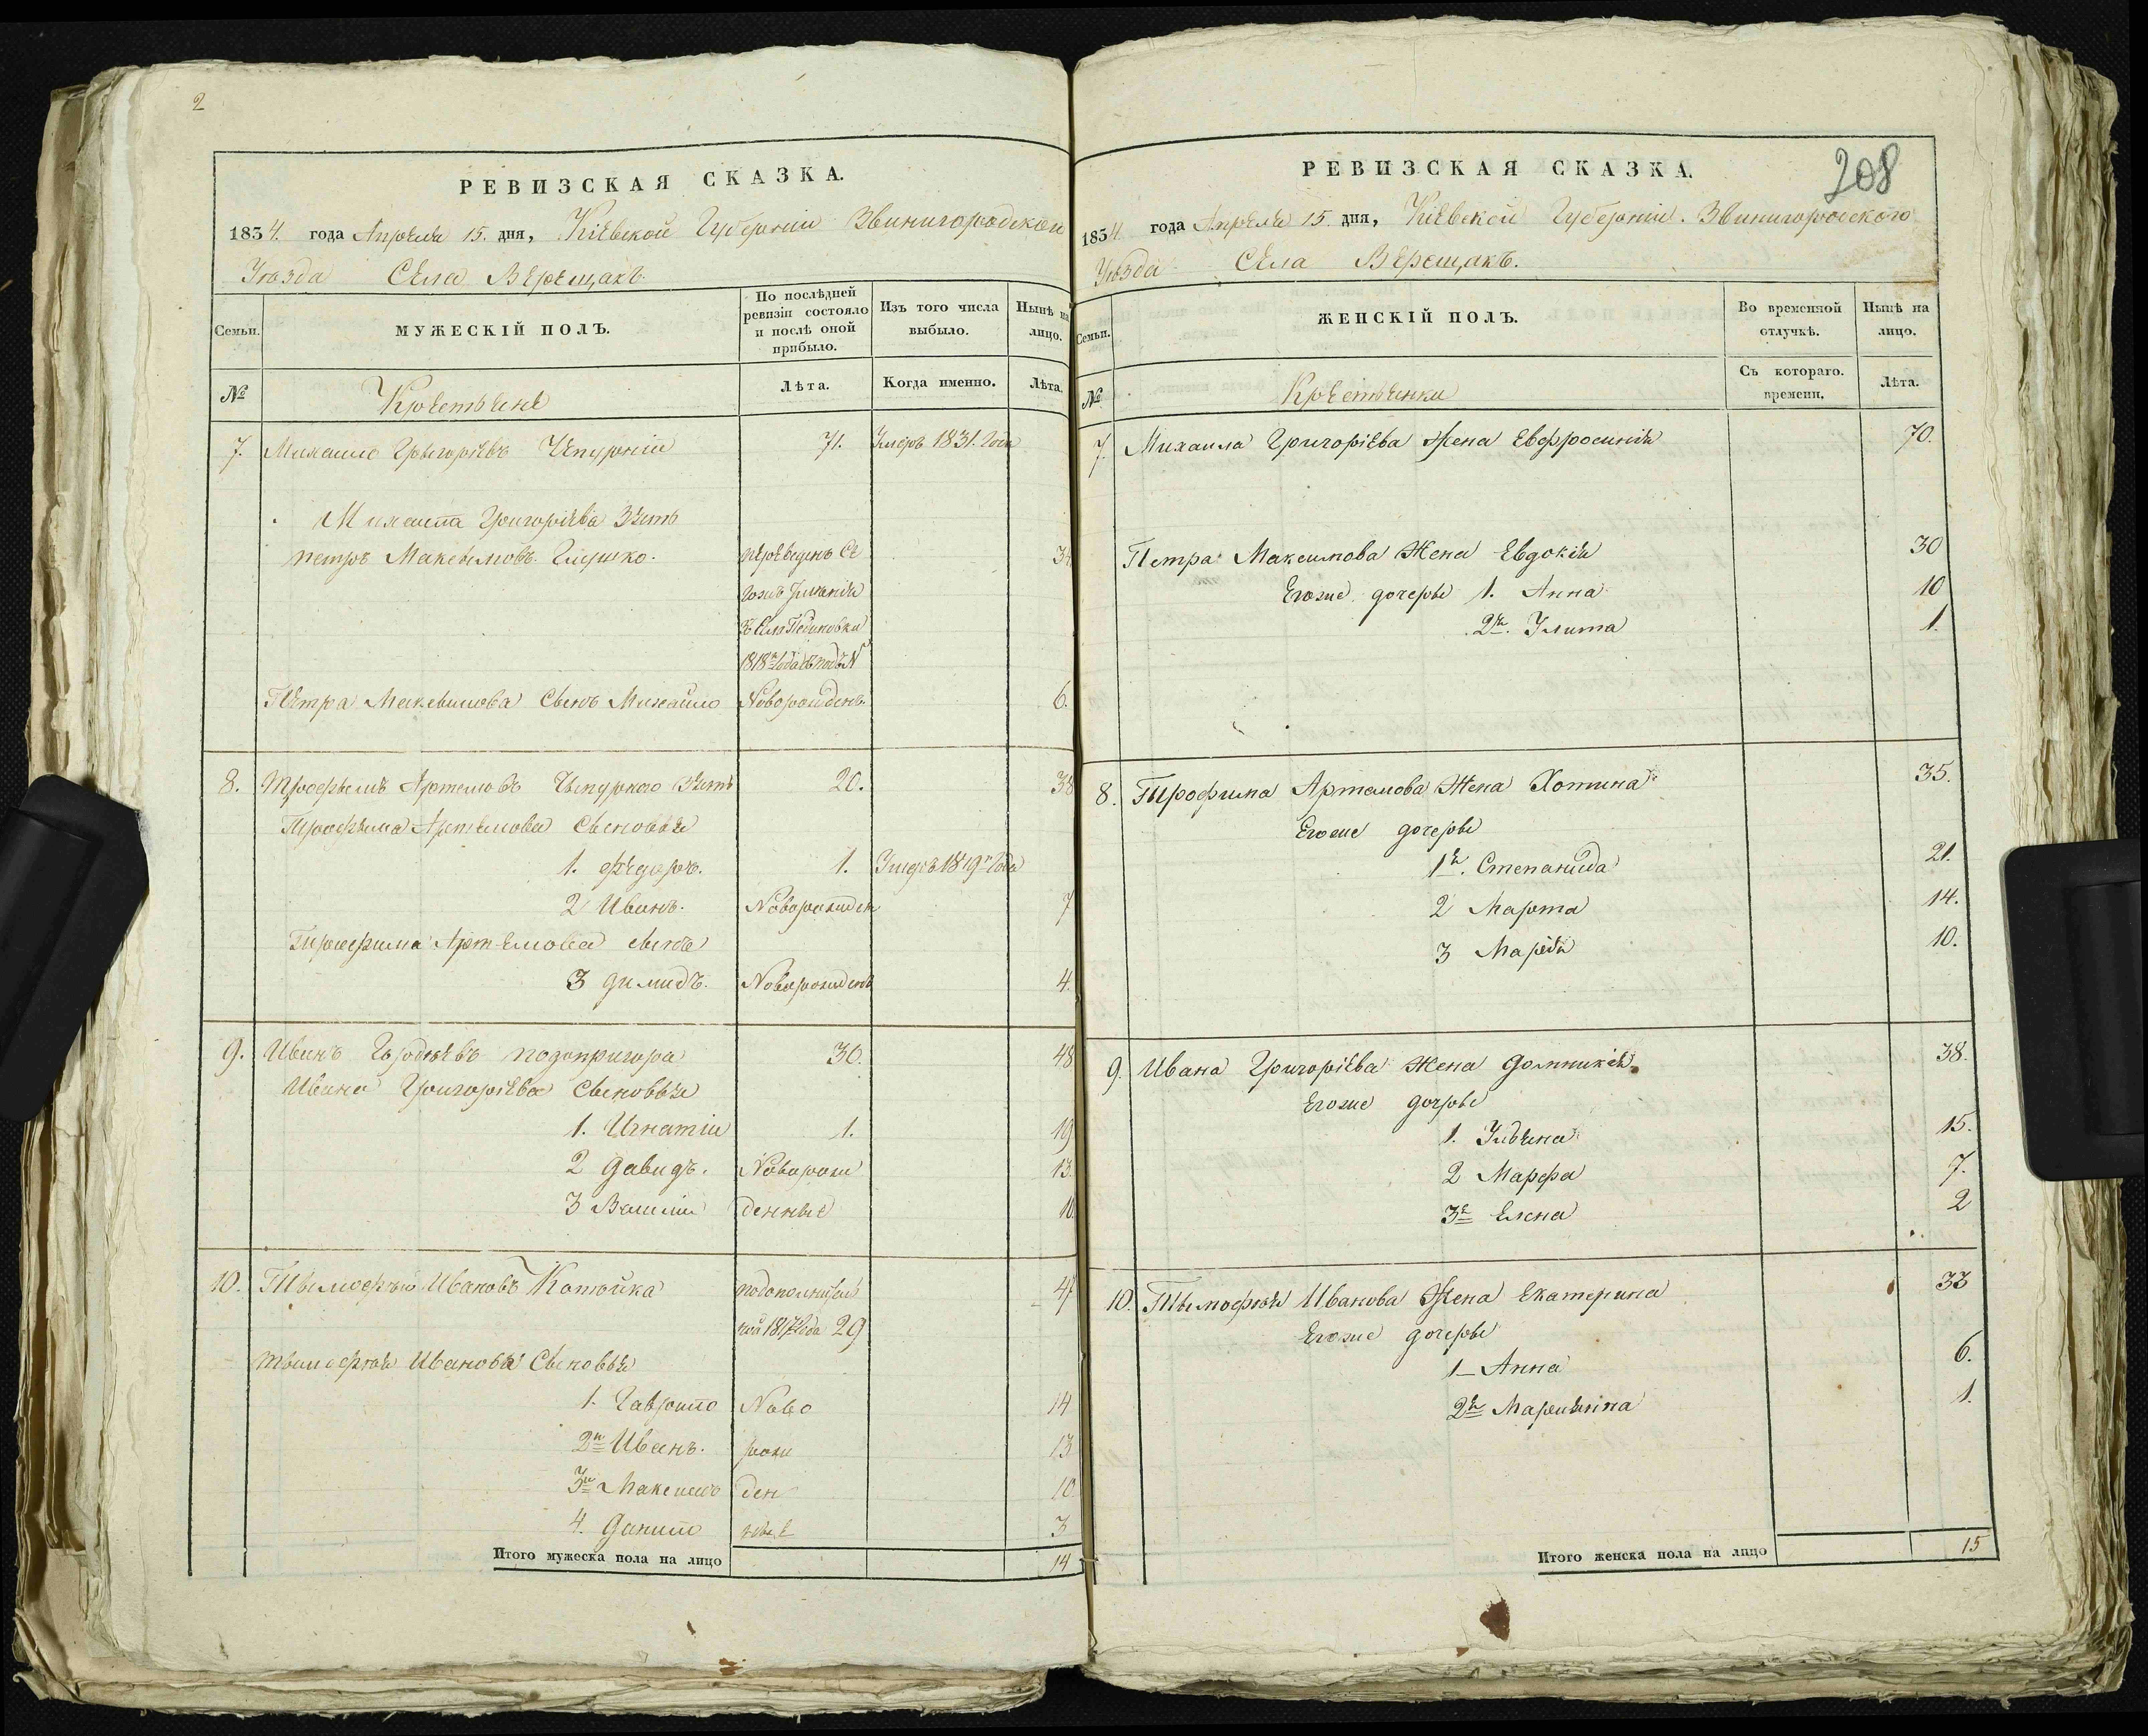 2
РЕВИЗСКАЯ СКАЗКА.
1834. года Апреля 15. дня, Кіевской Губерніи Звинигородскои
Уѣзда Села Верещакъ
Семьи.
МУЖЕСКІЙ ПОЛЪ.
По послѣдней ревизіи состояло и послѣ оной прибыло.
Изъ того числа выбыло.
Нынѣ на лицо.
№
Крестяне
Лѣта.
Когда именно.
Лѣта.
7. Михаило Григоріевъ Чепурніи 71. Умеръ 1831. Года
Михаила Григоріева Зять
петръ Максимовъ переведенъ Се 34
гожъ Именія
зъ Села
1818 Года подъ N
Петра Максимова Сынъ МихаилоНоворожденъ 6.
8. Трофымъ Артемовъ Чепурного Зять 20. 38
Трофыма Артемова Сыновья
1. Федоръ. 1. Умеръ 1819 Года
2 Иванъ. Новорожден 7
Трофима Артемова сынъ
3 димидъ. Новорожденъ 4.
9. Иванъ позопригора 30. 48
Ивана Григоріева Сыновья
1. Игнатіи 1. 19
2 Давидъ. Новорож 13.
3 Василіи денные 10.
10. Тымофѣй Ивановъ Котюйка 47
1817 Года 29
тымофѣя Иванова Сыновья
1. Гаврыло Ново 14
2й Иванъ. рож 13
3й Максимъ ден 10
4. Данило ные 3
Итого мужеска пола на лицо 14
208
РЕВИЗСКАЯ СКАЗКА.
1834 года Апреля 15. дня, Кіевской Губерніи. Звинигородского
Уѣзда Села Верещакъ.
Семьи.
ЖЕНСКІЙ ПОЛЪ.
Во временной отлучкѣ.
Нынѣ на лицо.
№
Крестянки
Съ котораго. времени.
Лѣта.
7. Михаила Григоріева Жена Евфросинія 70.
Петра Максимова Жена Евдокія 30
Егоже дочеры 1. Анна 10
2я. Улита 1.
8. Трофима Артемова Жена Хотина 35.
Егоже дочеры
1я. Степанида 21.
2 Марта 14.
3 Марія 10.
9. Ивана Григоріева Жена Домникія 38.
Егоже дочры
1. Уляна 15.
2 Марфа 7.
3я Елена 2
10. Тымофѣя Иванова Жена Екатерина 33
Егоже дочеры
1 Анна 6.
2я 1.
Итого женска пола на лицо 15